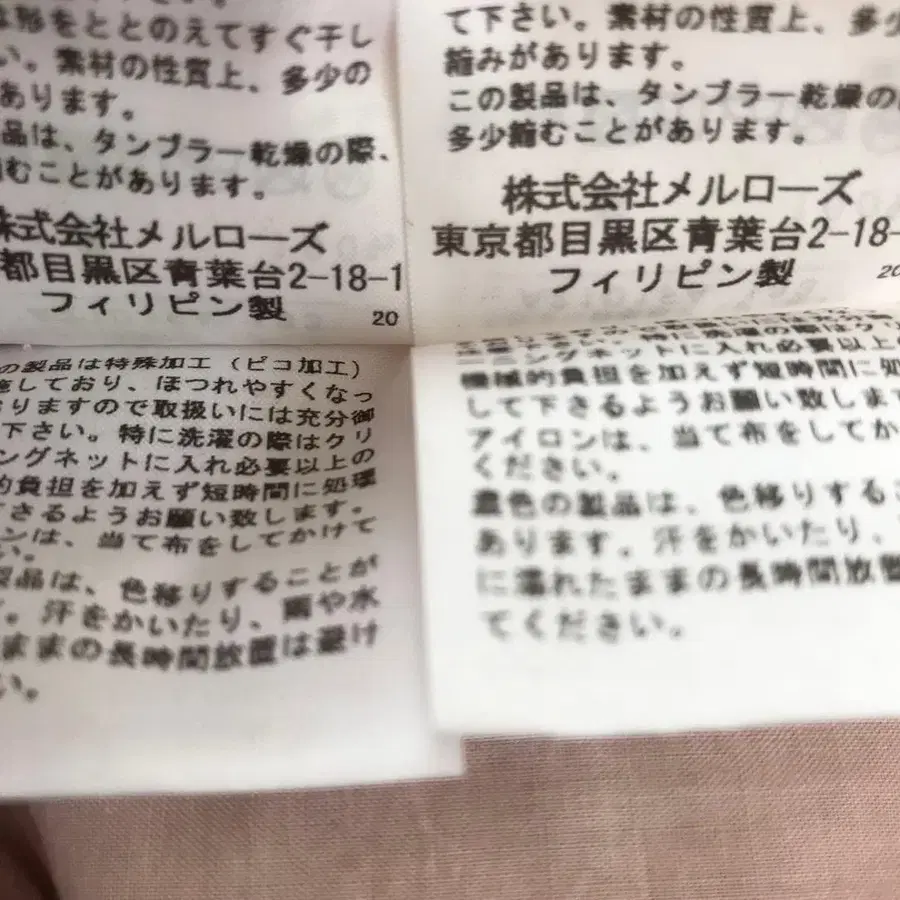 形をととのえてすぐ干し
い。素材の性質上、多少の
あります。
品は、タンブラー乾燥の際、
むことがあります。
株式会社メルローズ
都目黒区青葉台2-18-1
フィリピン製
20
て下さい。素材の性質上、多少
縮みがあります。
この製品は、タンブラー乾燥の
多少縮むことがあります。
株式会社メルローズ
東京都目黒区青葉台2-18-
フィリピン製
20
の製品は特殊加工（ピコ加工）
施しており、ほつれやすくなっ
おりますので取扱いには充分御
下さい。特に洗濯の際はクリ
ングネットに入れ必要以上の
的負担を加えず短時間に処理
下さるようお願い致します。
ンは、当て布をしてかけて
い。
製品は、色移りすることが
。汗をかいたり、雨や水
ままの長時間放置は避け
い。
特に洗濯の際はクリ
ーニングネットに入れ必要以上の
機械的負担を加えず短時間に処
して下さるようお願い致します
アイロンは、当て布をしてか
ください。
濃色の製品は、色移りするこ
あります。汗をかいたり、
に濡れたままの長時間放置
てください。